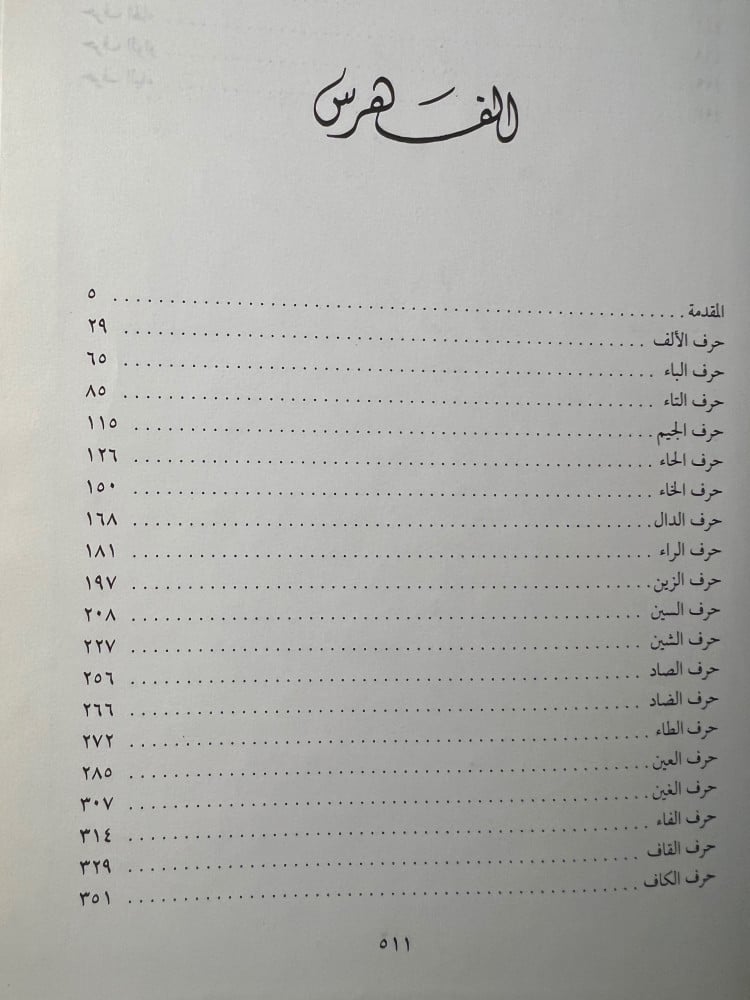 الفهرس
المقدمة ................ ٥
حرف الألف ................ ٢٩
حرف الباء ................ ٦٥
حرف التاء ................ ٨٥
حرف الجيم ................ ١١٥
حرف الحاء ................ ١٢٦
حرف الخاء ................ ١٥٠
حرف الدال ................ ١٦٨
حرف الراء ................ ١٨١
حرف الزين ................ ١٩٧
حرف السين ................ ٢٠٨
حرف الشين ................ ٢٢٧
حرف الصاد ................ ٢٥٦
حرف الضاد ................ ٢٦٦
حرف الطاء ................ ٢٧٢
حرف العين ................ ٢٨٥
حرف الغين ................ ٣٠٧
حرف الفاء ................ ٣١٤
حرف القاف ................ ٣٢٩
حرف الكاف ................ ٣٥١
٥١١